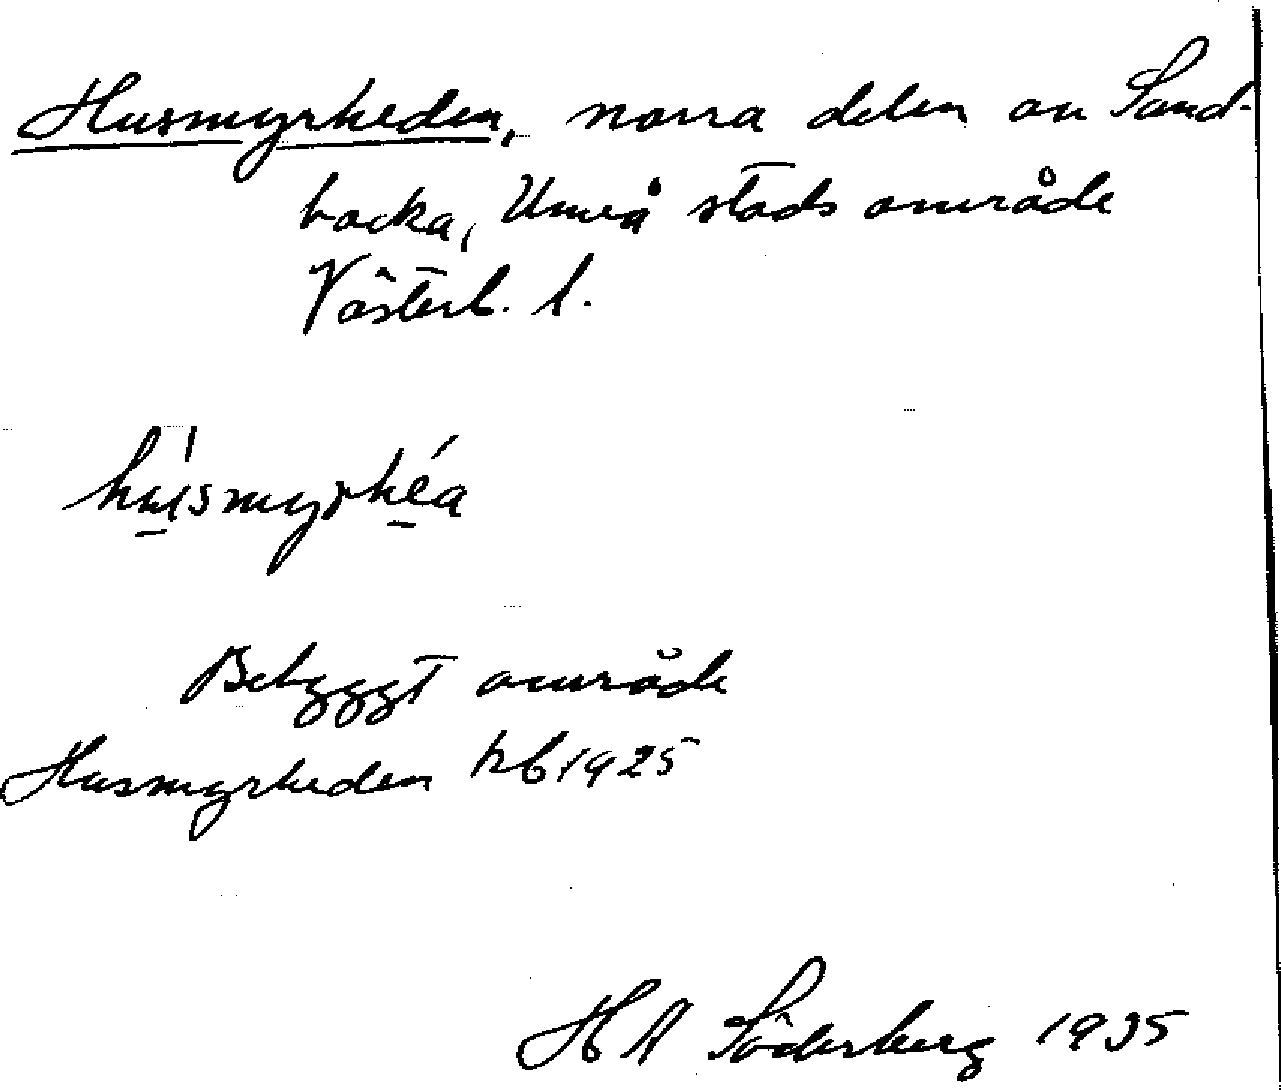 Husmyrheden, norra delen av Sand-
backa, Umeå stads område
Västerb. l.
húsmyrhéa
Bebyggt område
Husmyrheden hb 1925
H A Söderberg 1935